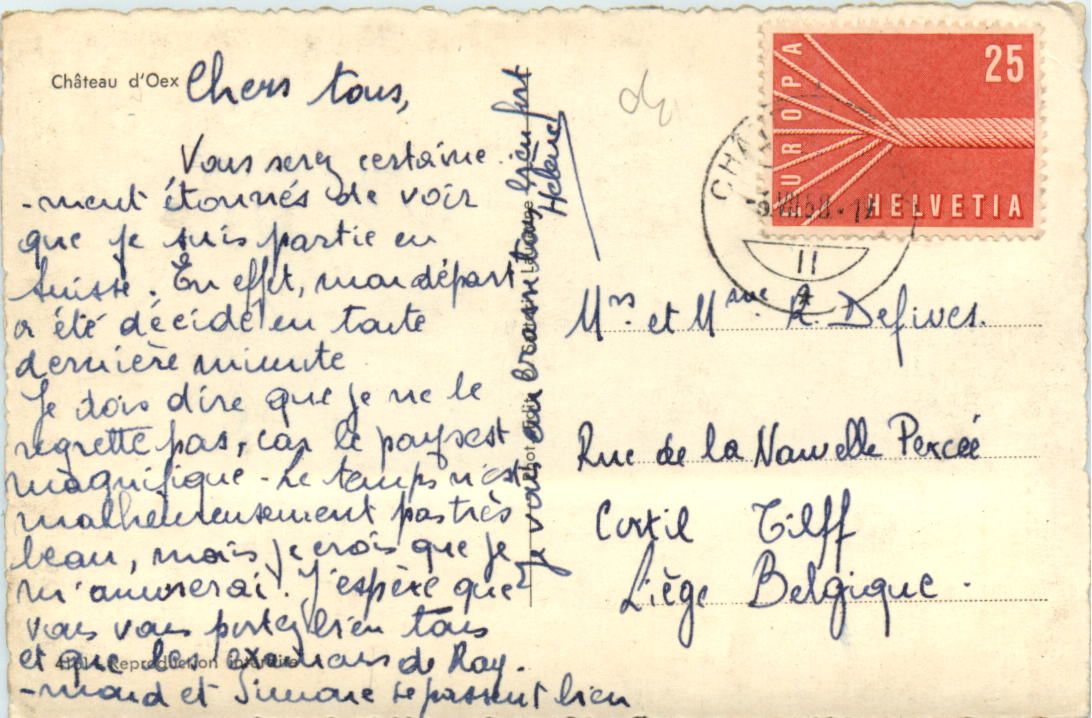 Château d'Oex
Chers tous,
Vous serez certaine
-ment étonnés de voir
que je suis partie en
Suisse. En effet, mon départ
a été décidé en toute
dernière minute
Je dois dire que je ne le
regrette pas, car le pays est
magnifique - Le temps n'est
malheureusement pas très
beau, mais je crois que je
m'amuserai. J'espère que
vous vous portez bien tous
et que les examens de Ray.
-mond et Simone se passent bien
Reproduction interdite
Je vous embrasse tous bien fort
Hélène
EUROPA
25
HELVETIA
CHÂ
II
Mrs. et Mme. A. Defives.
Rue de la Nouvelle Percée
Cortil Tilff
Liège Belgique.